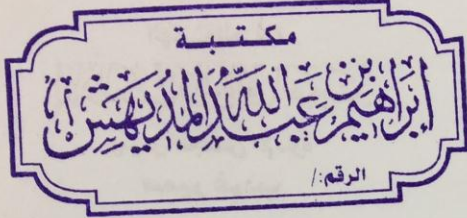 مكتبة
إبراهيم بن عبدالله المديهش
الرقم:/